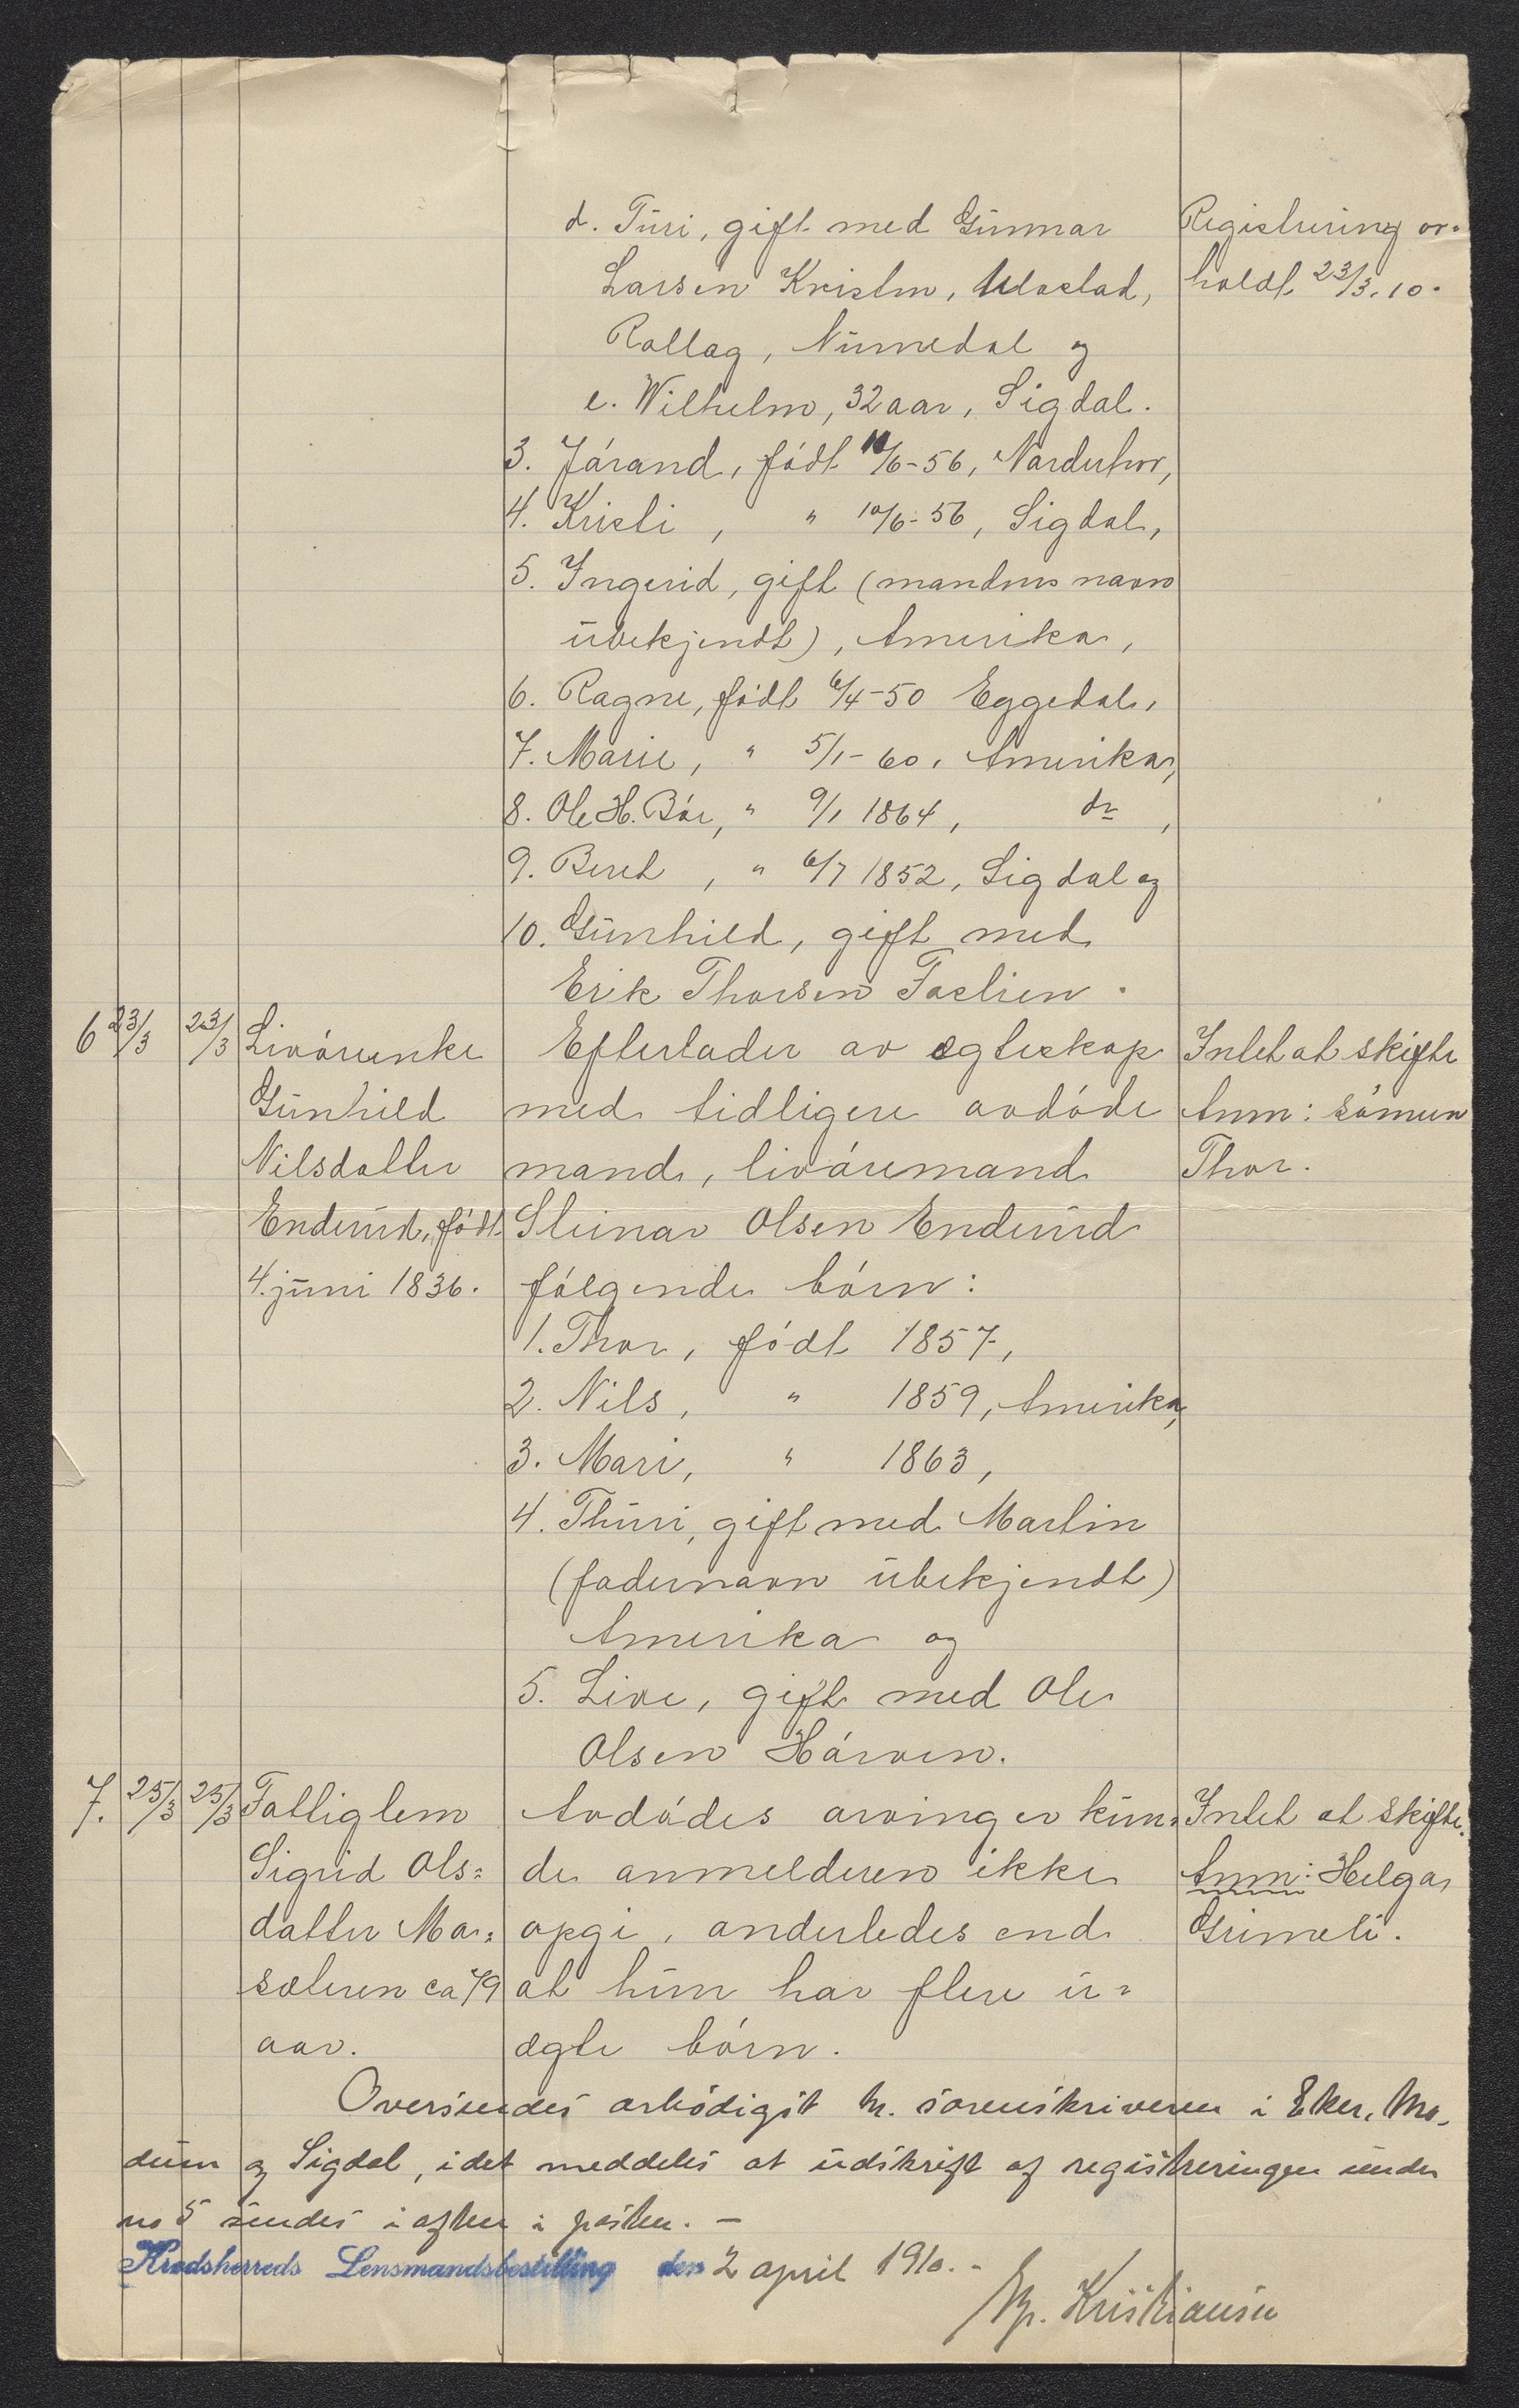 d. Turi, gift med Gunnar
Larsen Kristen,
Rollag, Numedal og
e. Wilhelm, 32 aar, Sigdal.
3. Jórand, födt 10/6-56, Norderhov,
4. Kristi, " 10/6-56, Sigdal,
5. Ingerid, gift (mandens navn
ubekjendt), Amerika,
6. Ragne, födt 6/4-50 Eggedal,
7. Marie, " 5/1-60, Amerika,
8. Ole H. Bór, " 9/1 1864, do,
9. Beret, " 6/7 1852, Sigdal og
10. Gunhild, gift med
Erik Thorsen Foslien.
Registrering av-
holdt 23/3.10.
6 23/3 23/3
Livórenke
Gunhild
Nilsdatter
Enderud, födt
4. juni 1836.
Efterlader av egteskap
med tidligere avdóde
mand, livóremand
Steinar Olsen Enderud
fólgende bórn:
1. Thor, födt 1857,
2. Nils, " 1859, Amerika,
3. Mari, " 1863,
4. Thuri, gift med Martin
(fadernavn ubekjendt)
Amerika og
5. Live, gift med Ole
Olsen Hórven.
Intet at skifte
Anm: sónnen
Thor.
7. 25/3 25/3
Fattiglem
Sigrid Ols=
datter Mo=
sæteren ca 79
aar.
Avdódes arvinger kun=
de anmelderen ikke
opgi, anderledes end
at hun har flere u=
ægte bórn.
Intet at skifte.
Anm: Helga
Grimeli.
Oversendes ærbödigst hr. sorenskriveren i Eker, Mo-
dum og Sigdal, idet meddeles at udskrift af registreringen under
no 5 sendes i aften i posten. —
Krødsherreds Lensmandsbestilling den 2 april 1910. -
Kristiansen